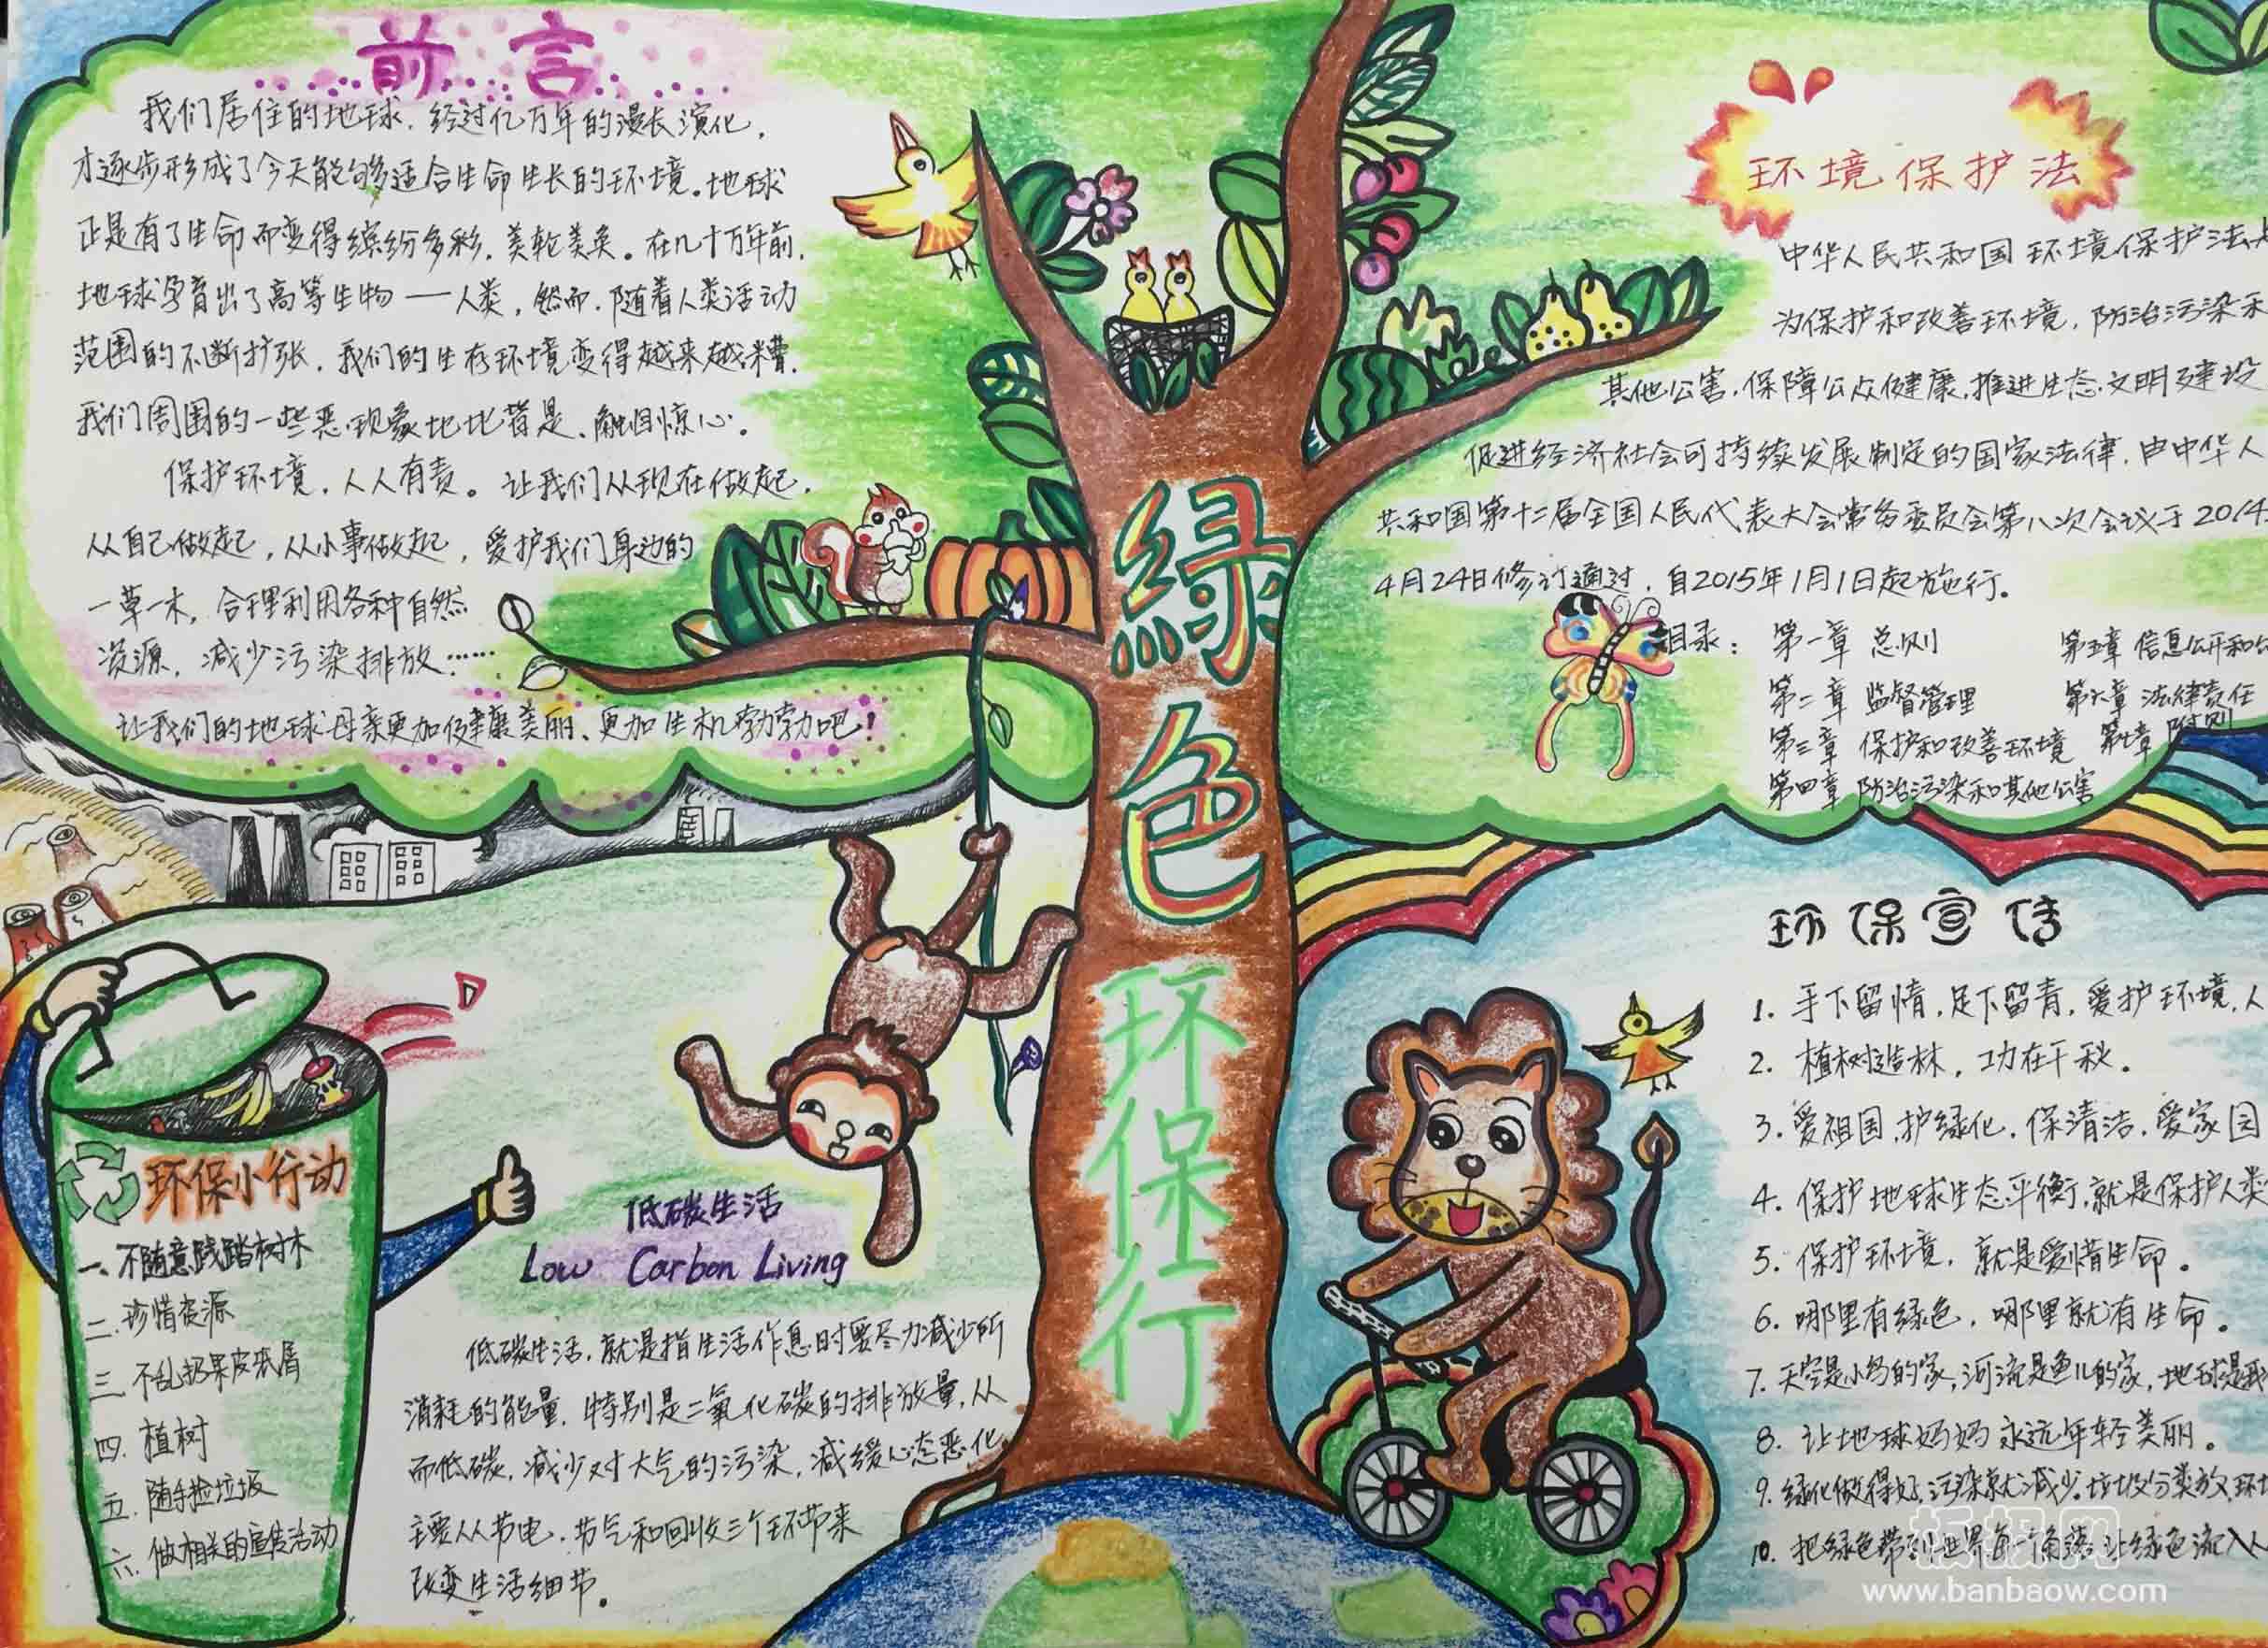 前言
我们居住的地球，经过亿万年的漫长演化，
才逐步形成了今天能够适合生命生长的环境。地球
正是有了生命而变得缤纷多彩，美轮美奂。在几十万年前，
地球孕育出了高等生物——人类，然而，随着人类活动
范围的不断扩张，我们的生存环境变得越来越糟，
我们周围的一些恶现象比比皆是、触目惊心。
保护环境，人人有责。让我们从现在做起，
从自己做起，从小事做起，爱护我们身边的
一草一木，合理利用各种自然
资源，减少污染排放……
让我们的地球母亲更加健康美丽、更加生机勃勃吧！
绿色
环保行
环境保护法
中华人民共和国环境保护法
为保护和改善环境，防治污染和
其他公害，保障公众健康，推进生态文明建设
促进经济社会可持续发展制定的国家法律，由中华人
共和国第十二届全国人民代表大会常务委员会第八次会议于2014
4月24日修订通过，自2015年1月1日起施行。
目录：第一章 总则 第五章 信息公开和
第二章 监督管理 第六章 法律责任
第三章 保护和改善环境 第七章 附则
第四章 防治污染和其他公害
环保小行动
一、不随意践踏树木
二、珍惜资源
三、不乱扔果皮纸屑
四、植树
五、随手捡垃圾
六、做相关的宣传活动
低碳生活
Low Carbon Living
低碳生活，就是指生活作息时要尽力减少所
消耗的能量，特别是二氧化碳的排放量，从
而低碳，减少对大气的污染，减缓心态恶化，
主要从节电，节气和回收三个环节来
改变生活细节。
环保宣传
1. 手下留情，足下留青，爱护环境，人
2. 植树造林，功在千秋。
3. 爱祖国，护绿化，保清洁，爱家园
4. 保护地球生态平衡，就是保护人类
5. 保护环境，就是爱惜生命。
6. 哪里有绿色，哪里就有生命。
7. 天空是小鸟的家，河流是鱼儿的家，地球是我
8. 让地球妈妈永远年轻美丽。
9. 绿化做得好，污染就减少。垃圾分类放，环
10. 把绿色带到世界每一角落，让绿色流入人
板报网
www.banbaow.com